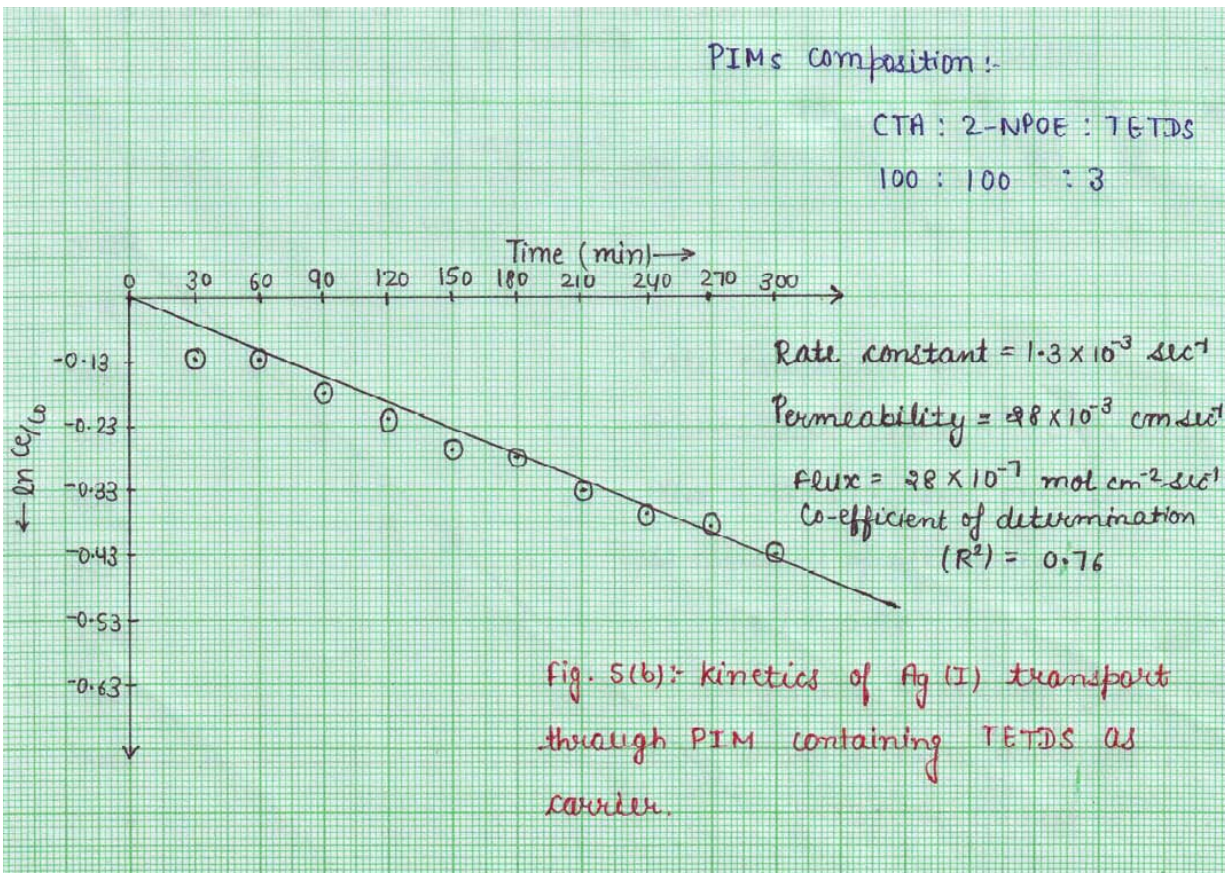 PIMs composition :-
CTA : 2-NPOE : TETDS
100 : 100 : 3
Time (min)→
0 30 60 90 120 150 180 210 240 270 300
-0.13
-0.23
-0.33
-0.43
-0.53
-0.63
← ln Ce/Co
Rate constant = 1.3 × 10⁻³ sec⁻¹
Permeability = 28 × 10⁻³ cm sec⁻¹
Flux = 28 × 10⁻⁷ mol cm⁻² sec⁻¹
Co-efficient of determination
(R²) = 0.76
Fig. 5(b):- kinetics of Ag (I) transport
through PIM containing TETDS as
carrier.